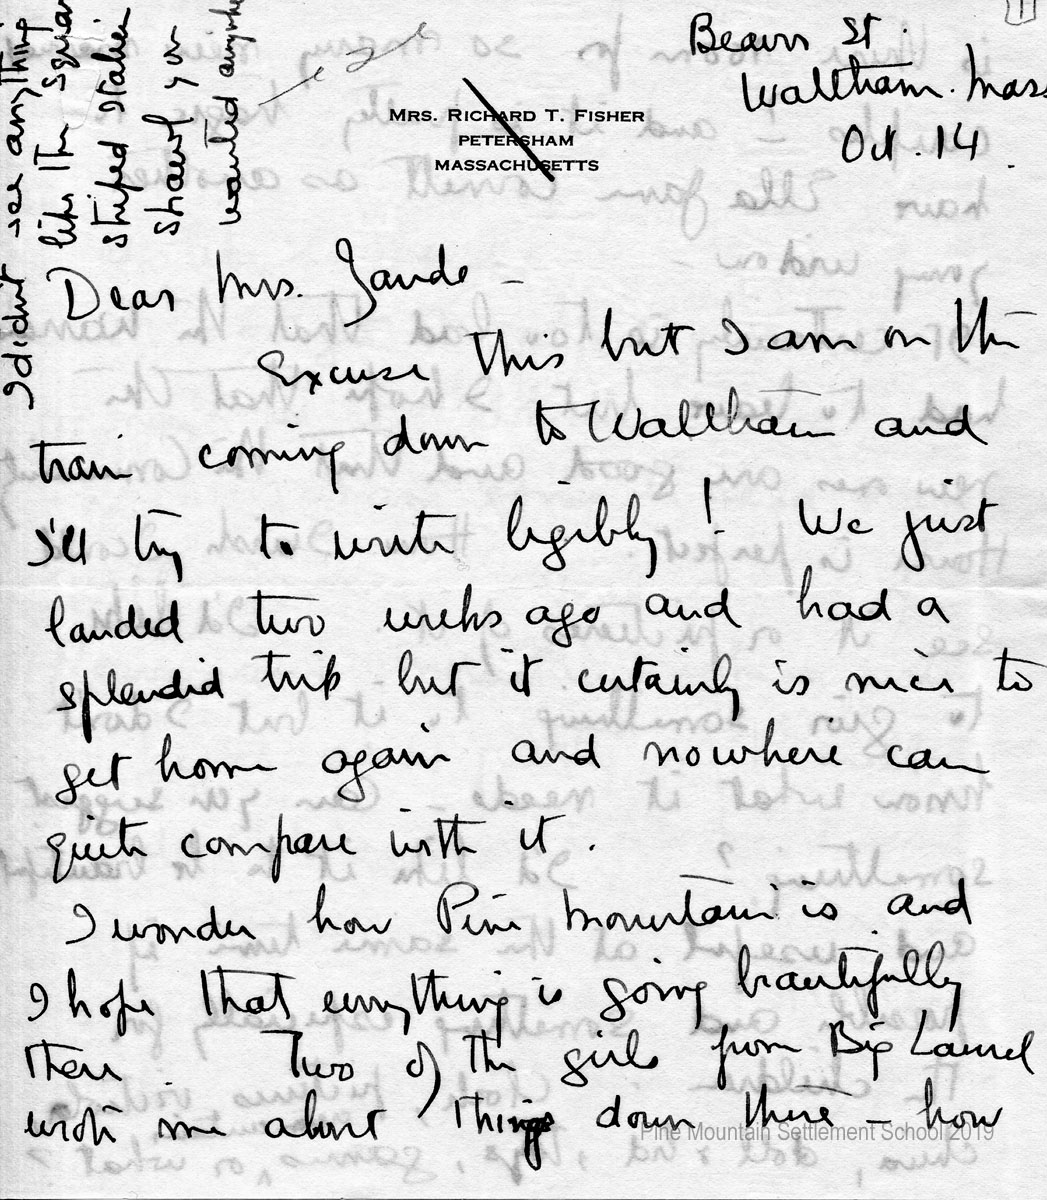 Beaver St.
Waltham. Mass
Oct. 14.
MRS. RICHARD T. FISHER
PETERSHAM
MASSACHUSETTS
I didn't see anything
like the
striped Italian
shawl you
wanted anywhere
Dear Mrs. Zande –
Excuse this but I am on the
train coming down to Waltham and
I'll try to write legibly! We just
landed two weeks ago and had a
splendid trip but it certainly is nice to
get home again and nowhere can
quite compare with it.
I wonder how Pine Mountain is and
I hope that everything is going beautifully
there. Two of the girls from Big Laurel
wrote me about things down there – how
Pine Mountain Settlement School 2019